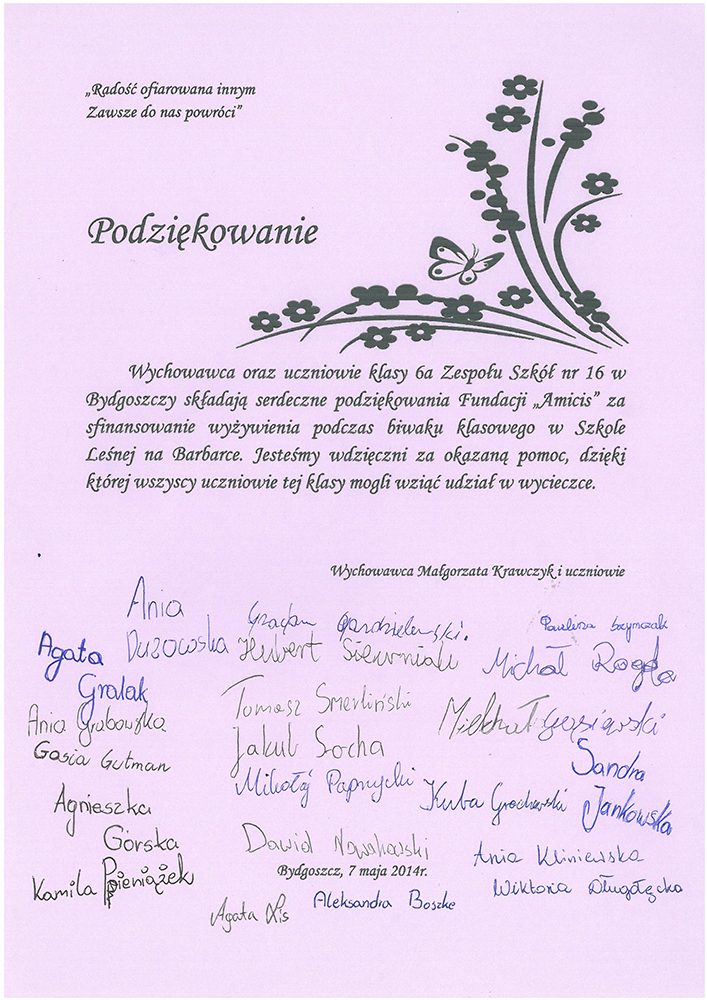 „Radość ofiarowana innym
Zawsze do nas powróci”
Podziękowanie
Wychowawca oraz uczniowie klasy 6a Zespołu Szkół nr 16 w
Bydgoszczy składają serdeczne podziękowania Fundacji „Amicis” za
sfinansowanie wyżywienia podczas biwaku klasowego w Szkole
Leśnej na Barbarce. Jesteśmy wdzięczni za okazaną pomoc, dzięki
której wszyscy uczniowie tej klasy mogli wziąć udział w wycieczce.
Wychowawca Małgorzata Krawczyk i uczniowie
Ania
Paulina
Agata
Hubert
Michał
Gralak
Tomasz Smerliński
Ania Grabowska
Michał
Gosia Gutman
Jakub Socha
Sandra
Mikołaj
Jankowska
Agnieszka
Kuba Grochowski
Górska
Dawid Nowakowski
Ania Kliniewska
Bydgoszcz, 7 maja 2014r.
Kamila Pieniążek
Wiktoria Długołęcka
Aleksandra Boszke
Agata Lis